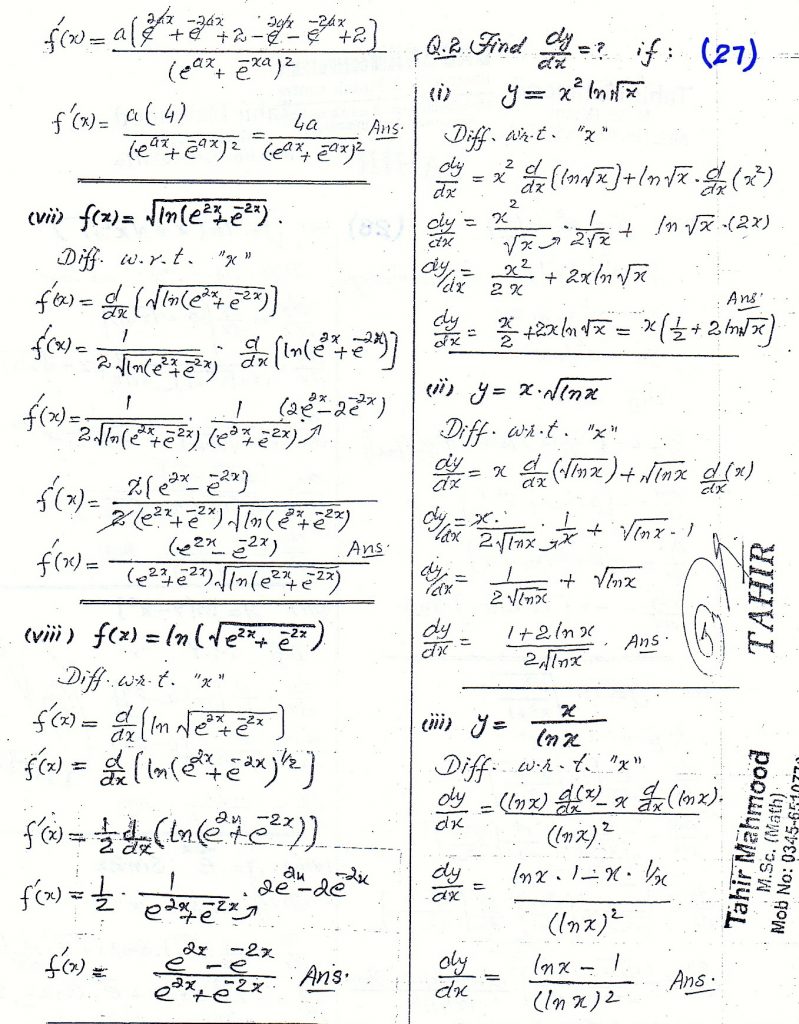 f'(x) = a[e^2ax + e^-2ax + 2 - e^2ax - e^-2ax + 2] / (e^ax + e^-xa)^2
f'(x) = a(4) / (e^ax + e^-ax)^2 = 4a / (e^ax + e^-ax)^2 Ans.
(vii) f(x) = √ln(e^2x + e^-2x).
Diff. w.r.t. "x"
f'(x) = d/dx [√ln(e^2x + e^-2x)]
f'(x) = 1 / 2√ln(e^2x + e^-2x) · d/dx [ln(e^2x + e^-2x)]
f'(x) = 1 / 2√ln(e^2x + e^-2x) · 1 / (e^2x + e^-2x) · (2e^2x - 2e^-2x)
f'(x) = 2[e^2x - e^-2x] / 2(e^2x + e^-2x)√ln(e^2x + e^-2x)
f'(x) = (e^2x - e^-2x) / (e^2x + e^-2x)√ln(e^2x + e^-2x) Ans.
(viii) f(x) = ln(√e^2x + e^-2x)
Diff. w.r.t. "x"
f'(x) = d/dx [ln √e^2x + e^-2x]
f'(x) = d/dx [ln(e^2x + e^-2x)^1/2]
f'(x) = 1/2 d/dx [ln(e^2x + e^-2x)]
f'(x) = 1/2 · 1 / e^2x + e^-2x · 2e^2x - 2e^-2x
f'(x) = e^2x - e^-2x / e^2x + e^-2x Ans.
Q.2 Find dy/dx = ? if : (27)
(i) y = x^2 ln√x
Diff. w.r.t. "x"
dy/dx = x^2 d/dx [ln√x] + ln√x · d/dx (x^2)
dy/dx = x^2 / √x · 1 / 2√x + ln√x · (2x)
dy/dx = x^2 / 2x + 2x ln√x
Ans.
dy/dx = x/2 + 2x ln√x = x[1/2 + 2 ln√x]
(ii) y = x · √lnx
Diff. w.r.t. "x"
dy/dx = x d/dx (√lnx) + √lnx d/dx (x)
dy/dx = x · 1 / 2√lnx · 1/x + √lnx · 1
dy/dx = 1 / 2√lnx + √lnx
dy/dx = 1 + 2 lnx / 2√lnx . Ans.
(iii) y = x / lnx
Diff. w.r.t. "x"
dy/dx = (lnx) d/dx (x) - x d/dx (lnx) / (lnx)^2
dy/dx = lnx · 1 - x · 1/x / (lnx)^2
dy/dx = lnx - 1 / (lnx)2 Ans.
TAHIR
Tahir Mahmood
M.Sc. (Math)
Mob No: 0345-6510